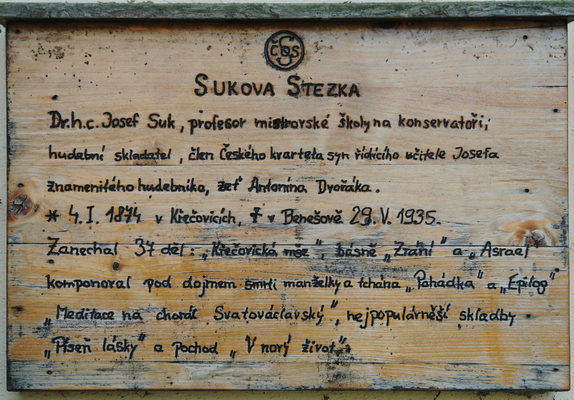 ČOS
SUKOVA STEZKA
Dr.h.c. Josef Suk, profesor mistrovské školy na konservatoři,
hudební skladatel, člen Českého kvarteta syn řídícího učitele Josefa
znamenitého hudebníka, zeť Antonína Dvořáka.
* 4. I. 1874 v Křečovicích, ✝ v Benešově 29. V. 1935.
Zanechal 37 děl: „Křečovická mše", básně „Zrání" a „Asrael
komponoval pod dojmem smrti manželky a tchána „Pohádka" a „Epilog"
„Meditace na chorál Svatováclavský", nejpopulárnější skladby
„Píseň lásky" a pochod „V nový život".